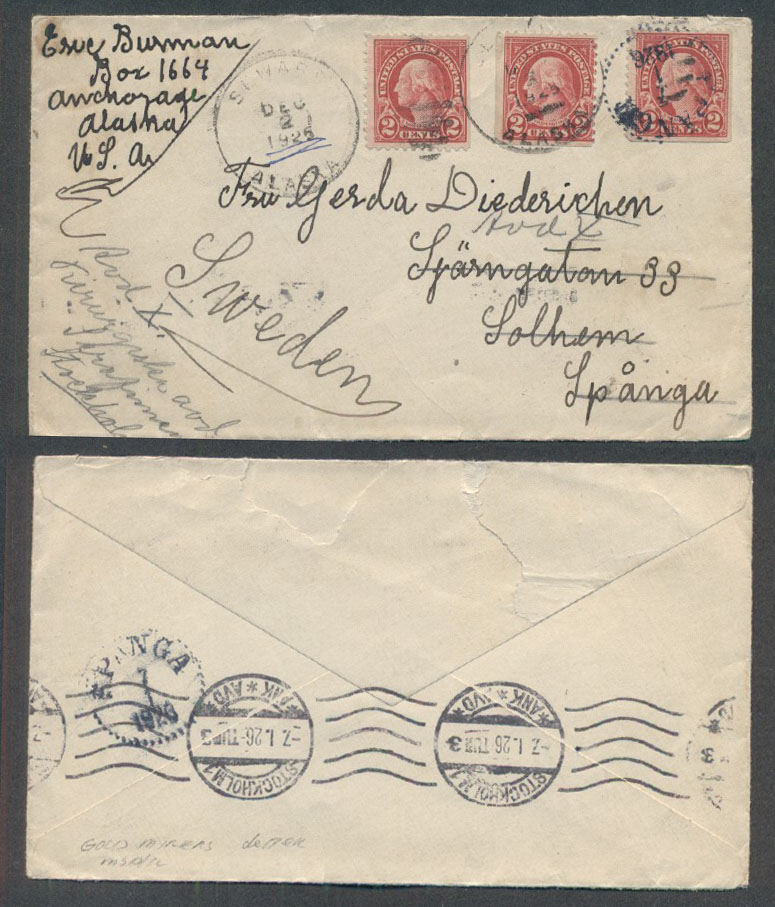 Eric Burman
Box 1664
Anchorage
Alaska
U.S.A.
SEWARD
DEC
2
1925
ALASKA
UNITED STATES POSTAGE
2 CENTS 2
UNITED STATES POSTAGE
2 CENTS 2
UNITED STATES POSTAGE
2 CENTS 2
1926
Fru Gerda Diederichen
Avd X
Stjärngatan 33
Solhem
Spånga
Sweden
Avd. X.
SPÅNGA
7
1
1926
ANK * AVD *
-7.1.26.TUR 3
STOCKHOLM 1
ANK * AVD *
-7.1.26.TUR 3
STOCKHOLM 1
GOLD MINERS LETTER
INSIDE